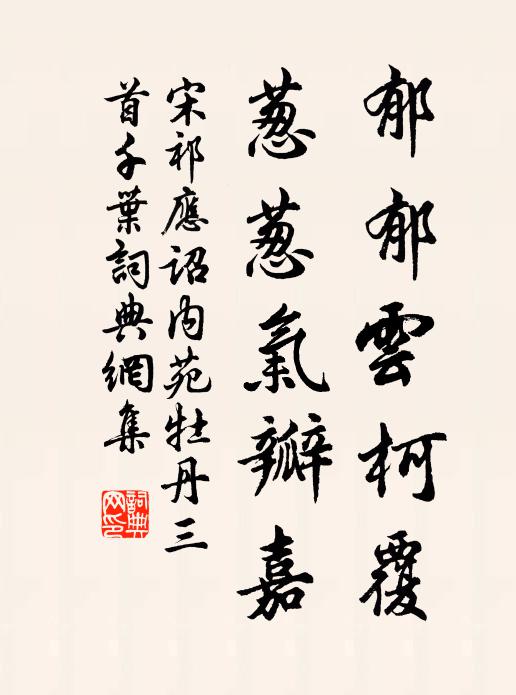 郁郁雲柯覆
葱葱氣瓣嘉
宋祁應詔内苑牡丹三
首千葉詞典網集
詞典
网印